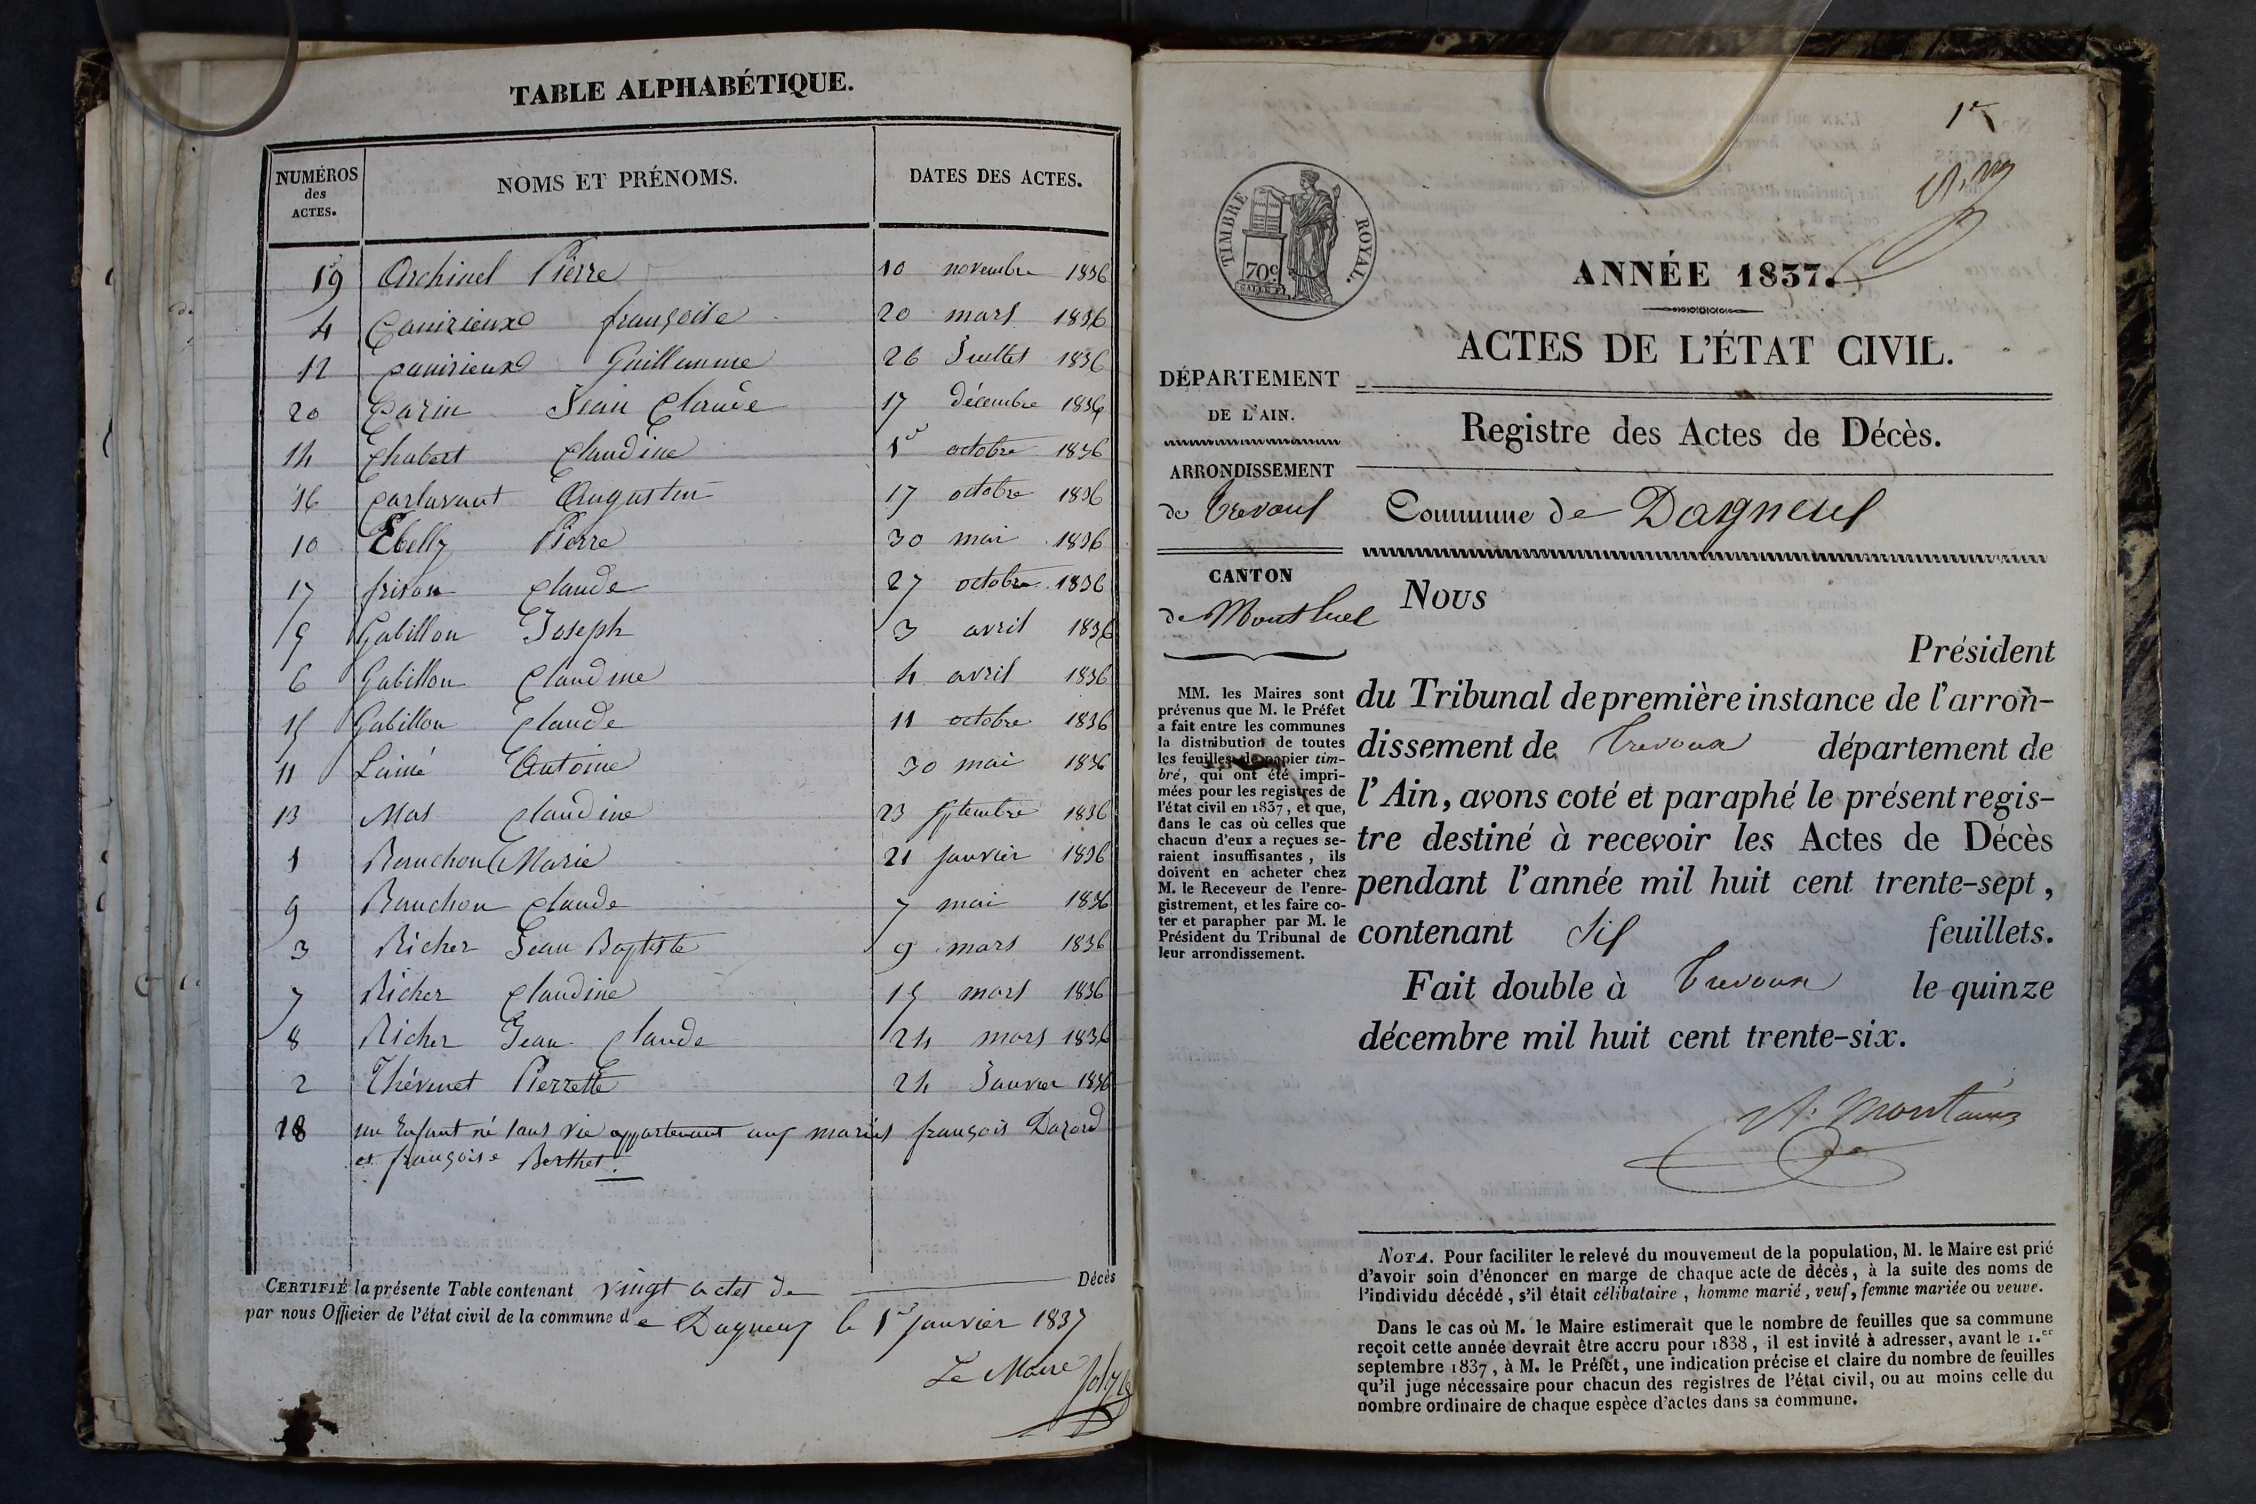 TABLE ALPHABÉTIQUE.
NUMÉROS des ACTES. NOMS ET PRÉNOMS. DATES DES ACTES.
19 Archinel Pierre 10 novembre 1836
4 françoise 20 mars 1836
12 Guillaume 26 Juillet 1836
20 Carin Jean Claude 17 décembre 1836
14 Chabert Claudine 1er octobre 1836
16 Augustin 17 octobre 1836
10 Ebelly Pierre 30 mai 1836
17 frison Claude 27 octobre 1836
5 Gabillon Joseph 3 avril 1836
6 Gabillon Claudine 4 avril 1836
15 Gabillon Claude 11 octobre 1836
11 Lainé Antoine 30 mai 1836
13 Mas Claudine 23 septembre 1836
1 Rauchon Marie 21 Janvier 1836
9 Rauchon Claude 7 mai 1836
3 Richer Jean Baptiste 9 mars 1836
7 Richer Claudine 15 mars 1836
8 Richer Jean Claude 24 mars 1836
2 Thévenet Pierrette 24 Janvier 1836
18 un Enfant né sans vie appartenant aux mariés françois Dazord
et françoise Berthet.
CERTIFIÉ la présente Table contenant vingt actes de Décès
par nous Officier de l'état civil de la commune de Dagneux le 1er Janvier 1837
Le Maire
1er
TIMBRE ROYAL.
70c
ANNÉE 1837.
ACTES DE L'ÉTAT CIVIL.
Registre des Actes de Décès.
Commune de Dagneux
DÉPARTEMENT
DE L'AIN.
ARRONDISSEMENT
de Trevoux
CANTON
de Montluel
MM. les Maires sont
prévenus que M. le Préfet
a fait entre les communes
la distribution de toutes
les feuilles de papier tim-
bré, qui ont été impri-
mées pour les registres de
l'état civil en 1837, et que,
dans le cas où celles que
chacun d'eux a reçues se-
raient insuffisantes, ils
doivent en acheter chez
M. le Receveur de l'enre-
gistrement, et les faire co-
ter et parapher par M. le
Président du Tribunal de
leur arrondissement.
Nous
Président
du Tribunal de première instance de l'arron-
dissement de Trevoux département de
l'Ain, avons coté et paraphé le présent regis-
tre destiné à recevoir les Actes de Décès
pendant l'année mil huit cent trente-sept,
contenant six feuillets.
Fait double à Trevoux le quinze
décembre mil huit cent trente-six.
NOTA. Pour faciliter le relevé du mouvement de la population, M. le Maire est prié
d'avoir soin d'énoncer en marge de chaque acte de décès, à la suite des noms de
l'individu décédé, s'il était célibataire, homme marié, veuf, femme mariée ou veuve.
Dans le cas où M. le Maire estimerait que le nombre de feuilles que sa commune
reçoit cette année devrait être accru pour 1838, il est invité à adresser, avant le 1.er
septembre 1837, à M. le Préfet, une indication précise et claire du nombre de feuilles
qu'il juge nécessaire pour chacun des registres de l'état civil, ou au moins celle du
nombre ordinaire de chaque espèce d'actes dans sa commune.